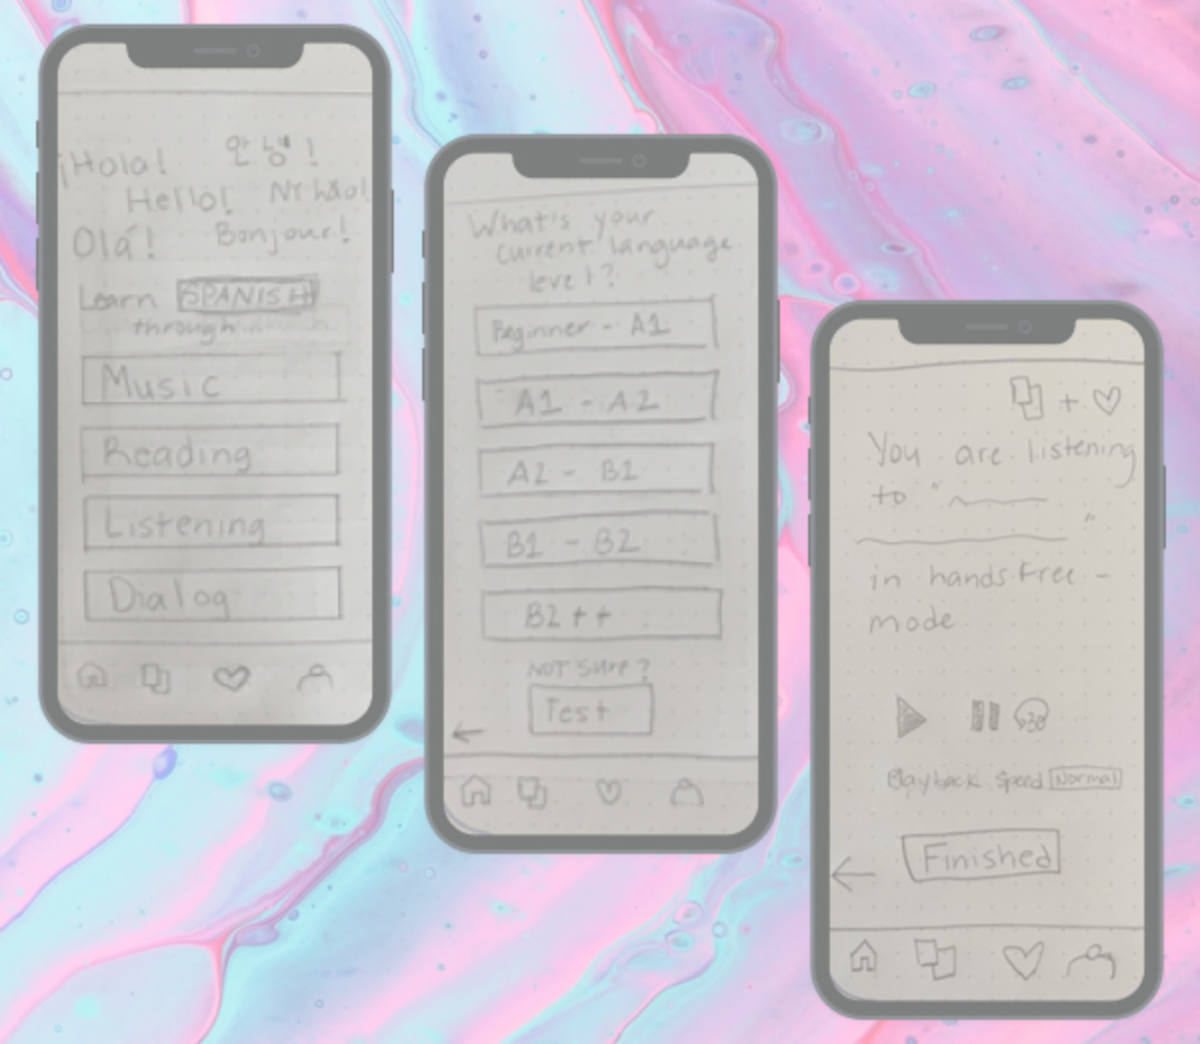 ¡Hola!
안녕!
Hello!
Nǐ hǎo!
Olá!
Bonjour!
Learn SPANISH
through...
Music
Reading
Listening
Dialog
What's your
current language
level?
Beginner - A1
A1 - A2
A2 - B1
B1 - B2
B2++
NOT sure?
Test
+
You are listening
to "
"
in handsfree -
mode
30
Playback Speed Normal
Finished